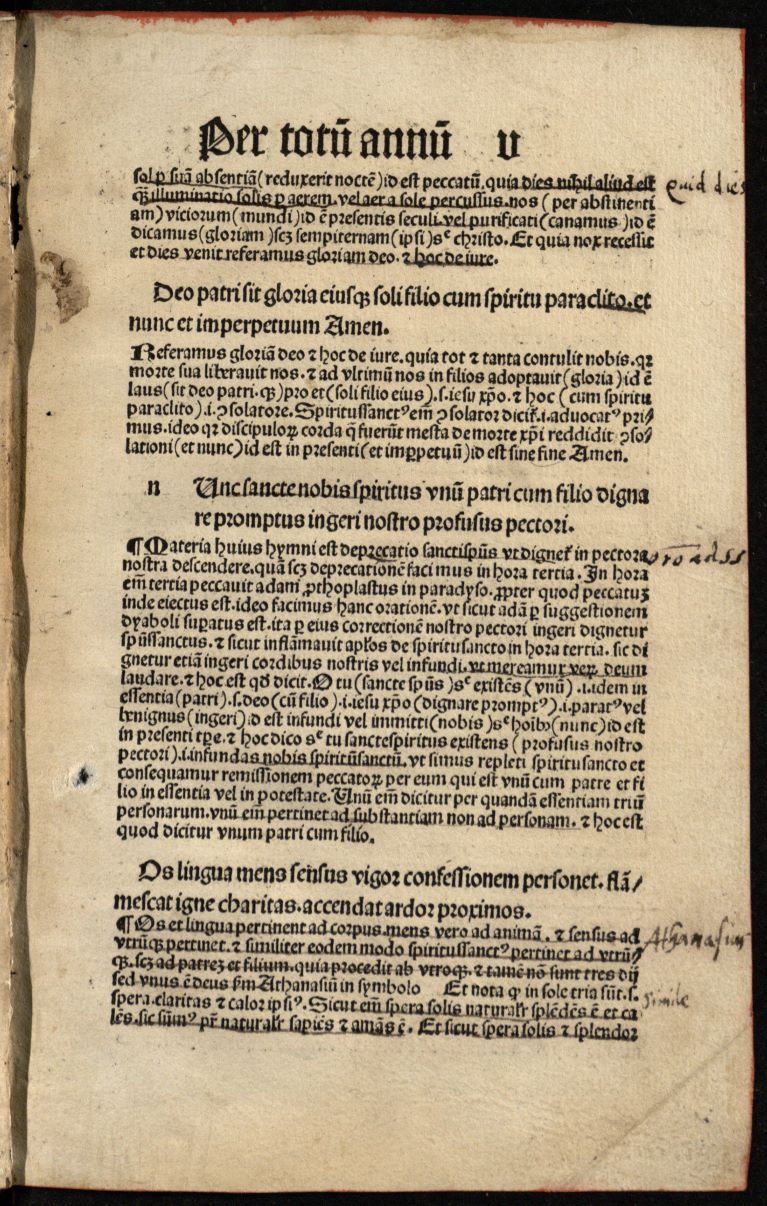 Per totū annū v
sol ꝑ suā absentiā (reduxerit noctē) id est peccatū. quia dies nihil aliud est
quid dies
qꝫ illuminatio solis ꝑ aerem. vel aer a sole percussus. nos (per abstinenti
am) viciorum (mundi) id ē presentis seculi. vel purificati (canamus) id ē
dicamus (gloriam) scꝫ sempiternam (ipsi) sᶜ christo. Et quia nox recessit
et dies venit referamus gloriam deo. ⁊ hoc de iure.
Deo patri sit gloria eiusqꝫ soli filio cum spiritu paraclito. et
nunc et imperpetuum Amen.
Referamus gloriā deo ⁊ hoc de iure. quia tot ⁊ tanta contulit nobis. qꝛ
morte sua liberauit nos. ⁊ ad vltimū nos in filios adoptauit (gloria) id ē
laus (sit deo patri. qꝫ) pro et (soli filio eius). s. iesu xp̄o. ⁊ hoc (cum spiritu
paraclito). i. ↄsolatore. Spiritussanctꝰ em̄ ↄsolator dicit̄. i. aduocatꝰ pri/
mus. ideo qꝛ discipuloꝝ corda q̄ fuerūt mesta de morte xp̄i reddidit ↄso/
lationi (et nunc) id est in presenti (et imꝑpetuū) id est sine fine Amen.
n Unc sancte nobis spiritus vnū patri cum filio digna
re promptus ingeri nostro profusus pectori.
¶ Materia huius hymni est deprecatio sanctispūs vt dignet̄ in pectora
nostra descendere. quā scꝫ deprecationē facimus in hora tertia. In hora
em̄ tertia peccauit adam ꝓthoplastus in paradyso. ꝓpter quod peccatuꝫ
inde eiectus est. ideo facimus hanc orationē. vt sicut adā ꝑ suggestionem
dyaboli suꝑatus est. ita ꝑ eius correctionē nostro pectori ingeri dignetur
spūssanctus. ⁊ sicut inflāmauit apl̄os de spiritusancto in hora tertia. sic di
gnetur etiā ingeri cordibus nostris vel infundi. vt mereamur veꝝ deum
laudare. ⁊ hoc est qđ dicit. O tu (sancte spūs) sᶜ existēs (vnū). i. idem in
essentia (patri). s. deo (cū filio). i. iesu xp̄o (dignare promptꝰ). i. paratꝰ vel
benignus (ingeri) id est infundi vel immitti (nobis) sᶜ hoībꝰ (nunc) id est
in presenti tꝑe. ⁊ hoc dico sᶜ tu sanctespiritus existens (profusus nostro
pectori). i. infundas nobis spiritūsanctū. vt simus repleti spiritusancto et
consequamur remissionem peccatoꝝ per eum qui est vnū cum patre et fi
lio in essentia vel in potestate. Unū em̄ dicitur per quandā essentiam triū
personarum. vnū em̄ pertinet ad substantiam non ad personam. ⁊ hoc est
quod dicitur vnum patri cum filio.
Os lingua mens sensus vigor confessionem personet. flā/
mescat igne charitas. accendat ardor proximos.
¶ Os et lingua pertinent ad corpus. mens vero ad animā. ⁊ sensus ad
Athanasius
vtrūqꝫ pertinet. ⁊ similiter eodem modo spiritussanctꝰ pertinet ad vtrū/
qꝫ. scꝫ ad patreꝫ et filium. quia procedit ab vtroqꝫ. ⁊ tamē nō sunt tres dij
sed vnus ē deus ẜm Athanasiū in symbolo Et nota ꝙ in sole tria sūt. s.
simile
spera. claritas ⁊ calor ipsiꝰ. Sicut em̄ spera solis naturalr̄ splēdēs ē et ca
lēs. sic sūmꝰ pr̄ naturalr̄ sapiēs ⁊ amās ē. Et sicut spera solis ⁊ splendor